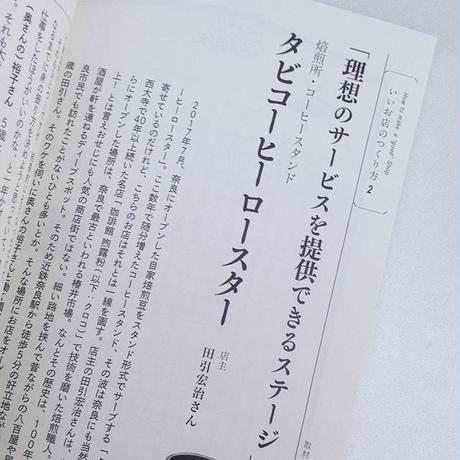 How to make a good Shop
いいお店のつくり方 2
「理想のサービスを提供できるステージ
焙煎所・コーヒースタンド
タビコーヒーロースター
店主
田引宏治さん
取材
2017年7月、奈良にオープンした自家焙煎豆をスタンド形式でサーブする「タ
ーヒーロースター」。ここ数年で随分増えたコーヒースタンド、その波は奈良にも当然
寄せているのだけれど、こちらのお店はそれとは一線を画す。店主の田引宏治さんは、
西大寺で40年以上続いた名店「珈琲館 煦露粉（以下：クロコ）」で技術を磨いた焙煎職人。
らにオープンした場所は、奈良で最古といわれる椿井市場。なんとその歴史は、100年
上！とは言えおせじにも人気の商店街ではない。細い路地を挟んで昔ながらの八百屋や居
酒屋が軒を連ねるディープスポット。そのため近鉄奈良駅から徒歩5分の好立地なが
良市民でも訪れたことがないひとも多いとか。そんな場所にお店をオープ
歳の田引さん。そのワケを伺いに
（奥さんの）裕子さん